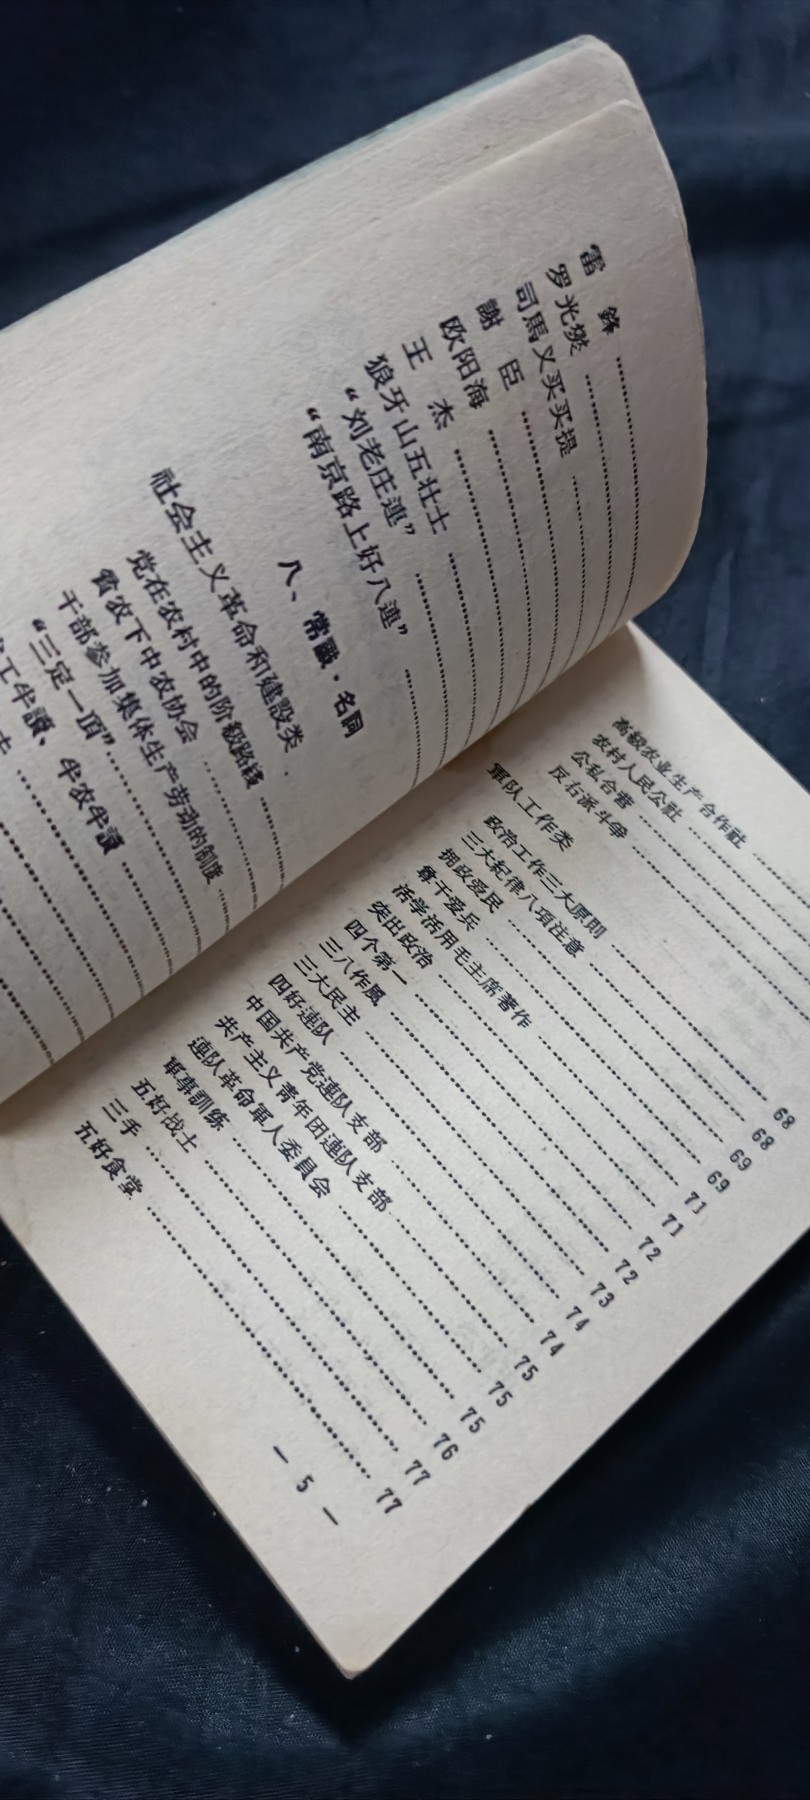 雷 鋒
罗光燮
司馬义买买提
謝 臣
欧阳海
王 杰
狼牙山五壮士
“刘老庄連”
“南京路上好八連”
八、常識·名詞
社会主义革命和建設类
党在农村中的阶級路綫
貧农下中农协会
干部参加集体生产劳动的制度
“三定一頂”
工半讀、半农半讀
高級农业生产合作社
农村人民公社
公私合营
反右派斗争
軍队工作类
政治工作三大原則 68
三大紀律八項注意 68
拥政爱民 69
尊干爱兵 69
活学活用毛主席著作 71
突出政治 71
四个第一 72
三八作風 72
三大民主 73
四好連队 74
中国共产党連队支部 74
共产主义青年团連队支部 75
連队革命軍人委員会 75
軍事訓练 75
五好战士 76
三手 77
五好食堂 77
— 5 —